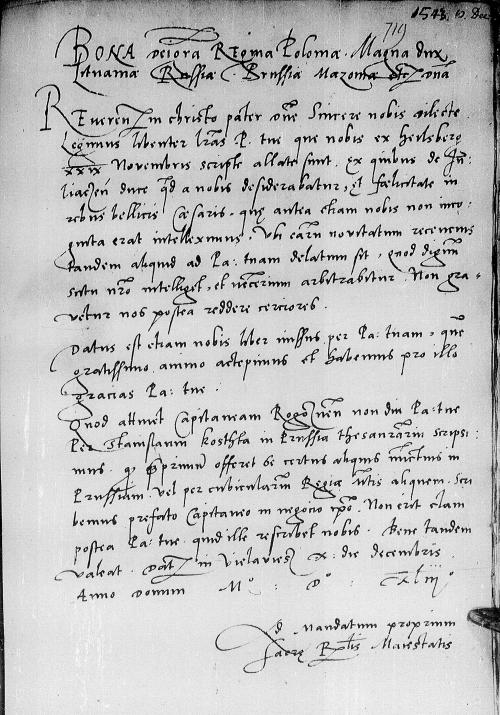 1543, 10. Dec
719
BONA dei gra Regina Poloniæ. Magna dux
Lituaniæ Russiæ. Prussiæ Mazoviæ etc. dna
Reverend in christo pater dne Sincere nobis dilecte
Legimus libenter lras P. tue que nobis ex Heilsberg
xxix Novembris scripte allate sunt. Ex quibus de
duce qd a nobis desiderabatur, et fælicitate in
rebus bellicis Cæsaris. que antea etiam nobis non inco
gnita erat intelleximus. Ubi earum novitatum recentius
tandem aliquid ad Pa: tuam delatum sit, quod dignum
scitu nro intelliget, et verum arbitrabitur. Non gra-
vetur nos postea reddere cerciores.
Datus est etiam nobis liber missus per Pa: tuam, quem
gratissimo animo accepimus et habemus pro illo
gracias Pa: tue.
Quod attinet Capitaneam non diu Pa: tue
Per Stanislaum Kosthka in Prussia thesaurarium scripsi
mus. offeret se certus aliquis nuncius in
Prussiam. vel per cubicularium Regiæ aliquem. Scri
bemus prefato Capitaneo in negocio ipso. Non erit clam
postea Pa: tue. quid ille rescribet nobis. Bene tandem
valeat. Dat in x. die decembris
Anno domini Mº : Dº : xliijº
Ad Mandatum proprium
Sacre Rlis Maiestatis